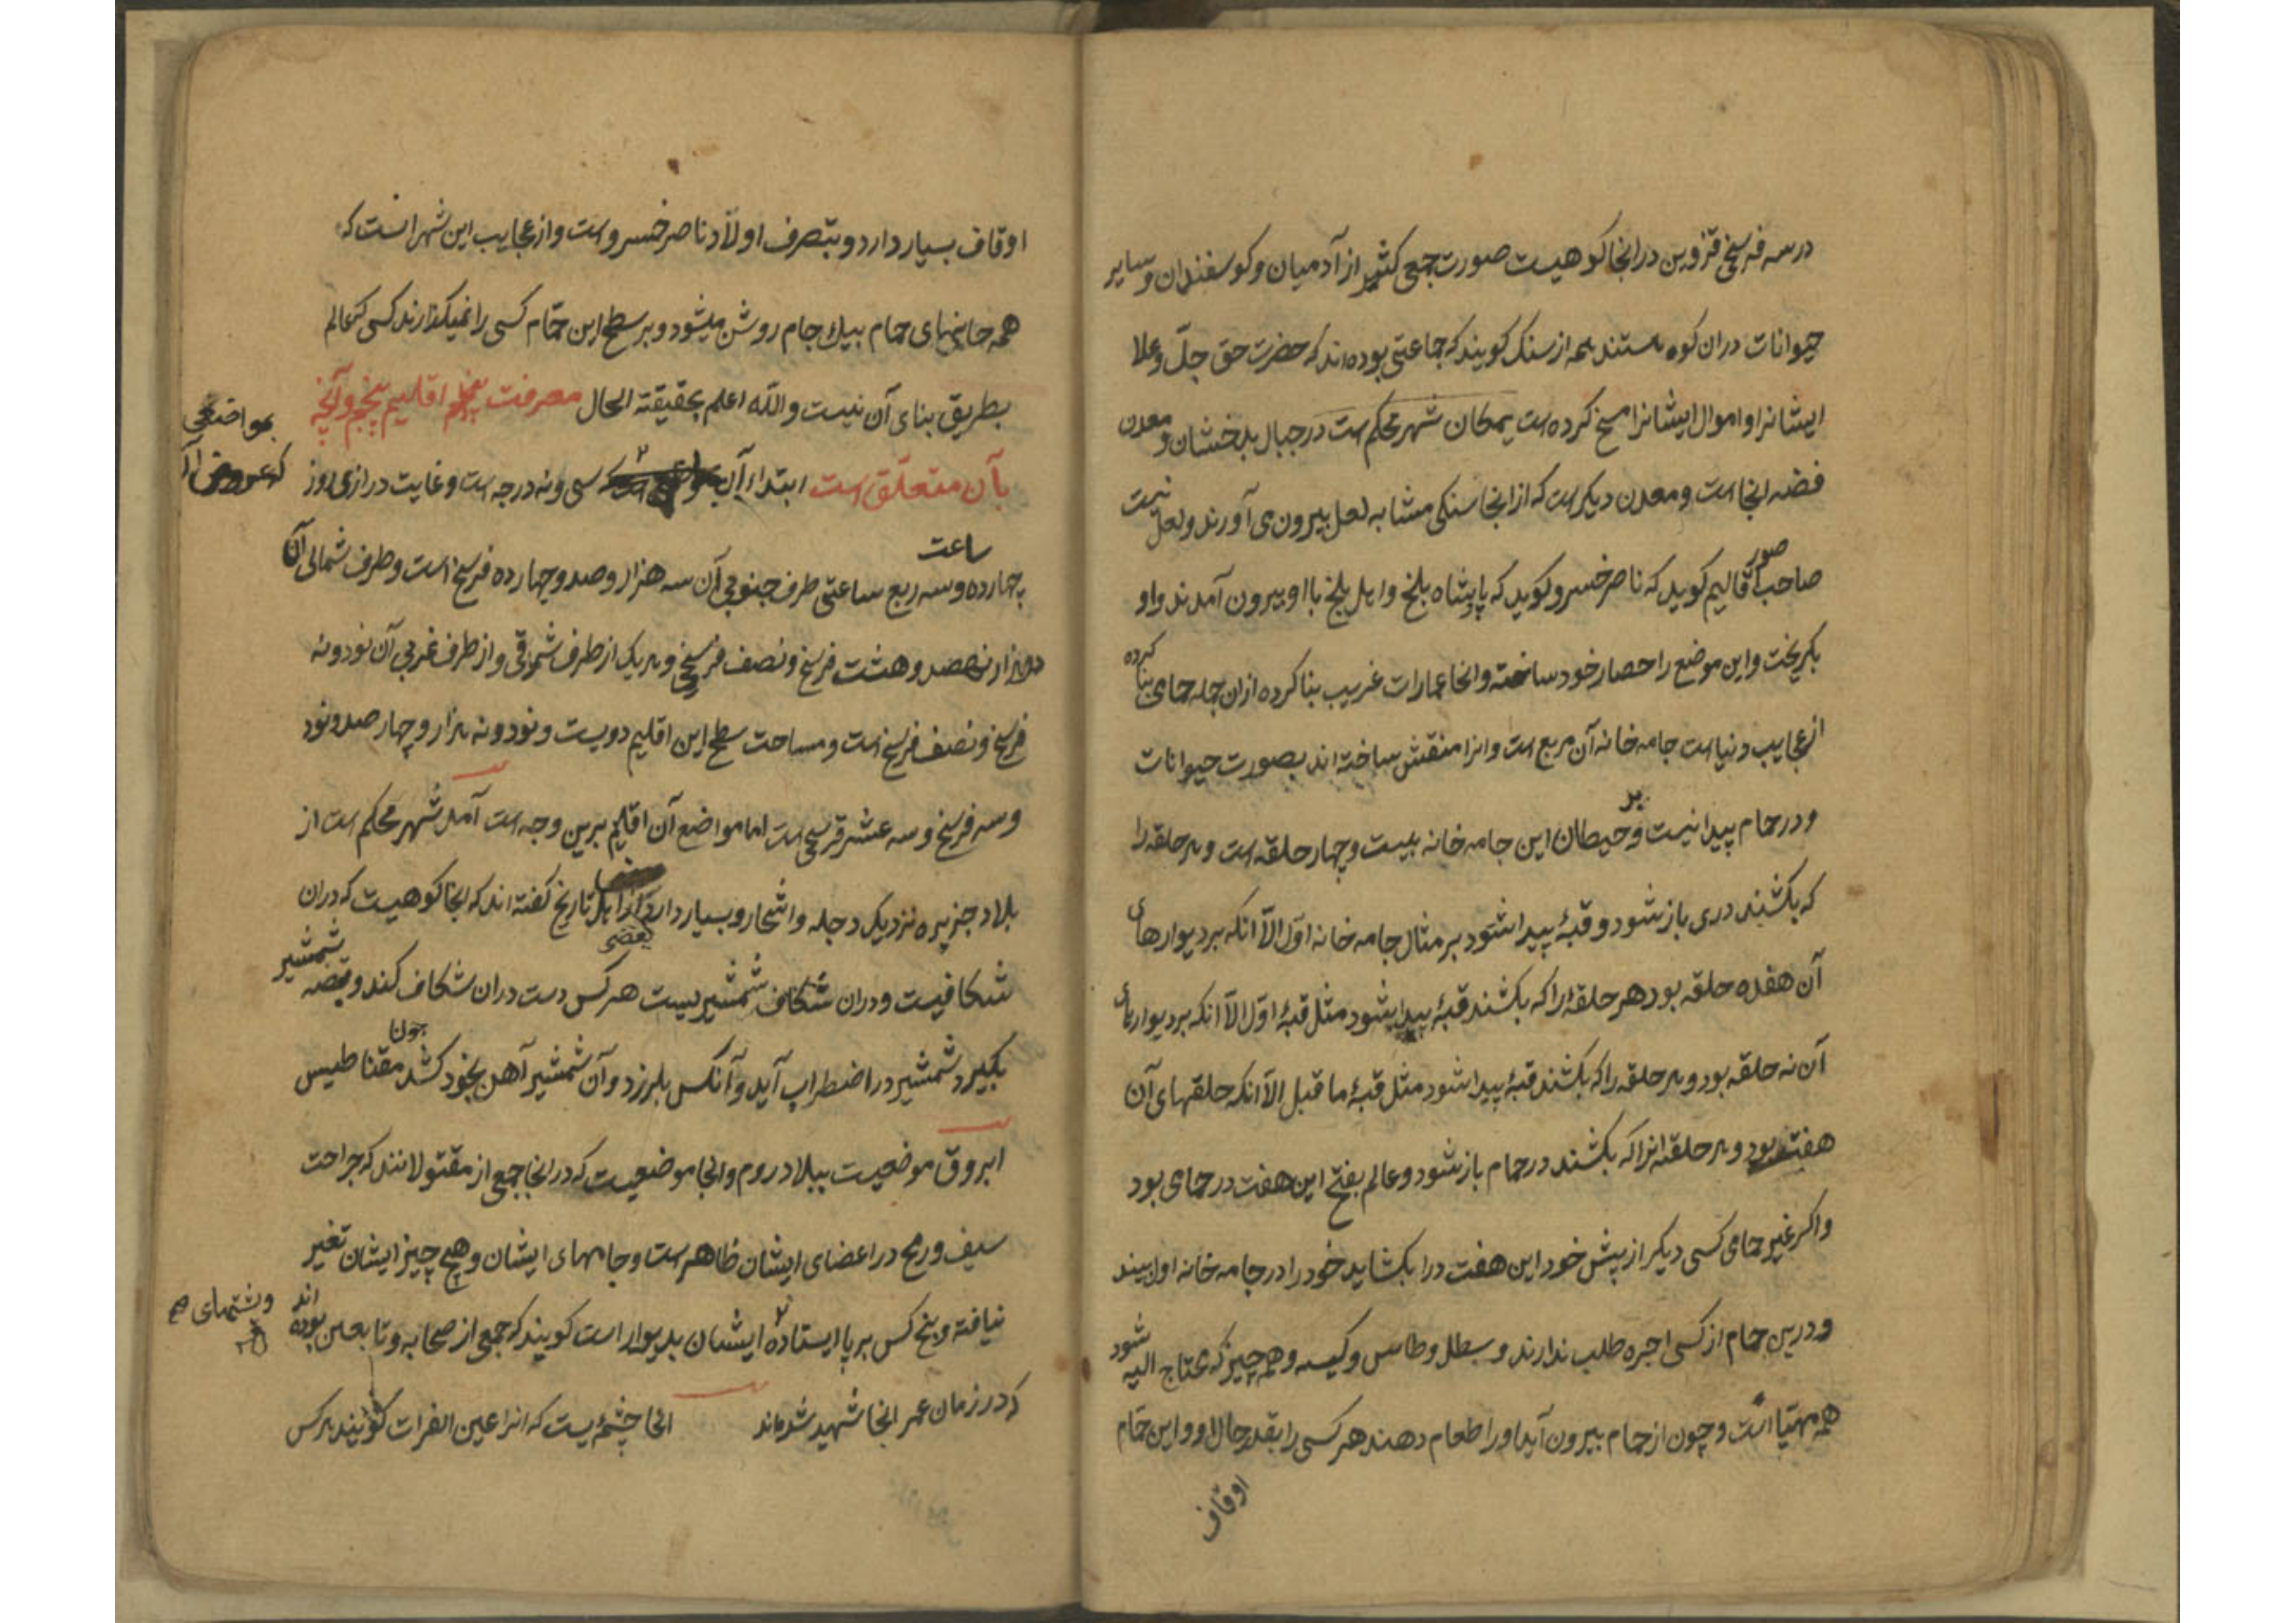 در سه فرسخ قزوین در انجا کوهیست صورت جمعی کثیر از آدمیان و کوسفندان و سایر
حیوانات دران کوه هستند همه از سنک کویند که جماعتی بوده‌اند که حضرت حق جلّ و علا
ایشانرا و اموال ایشانرا مسخ کرده است یمکان شهر محکم است در جبال بدخشان و معدن
فضه انجا است و معدن دیکر است که از انجا سنکی مشابه لعل بیرون می آورند و لعل نیست
صاحب صور آقالیم کوید که ناصر خسرو کوید که پادشاه بلخ و اهل بلخ با او بیرون آمدند و او
بکریخت و این موضع را حصار خود ساخته و انجا عمارات غریب بنا کرده از ان جمله حمامی بنا کرده
از عجایب دنیا است جامه خانه آن مربع است و انرا منقش ساخته اند بصورت حیوانات
و در حمام پیدا نیست و بر حیطان این جامه خانه بیست و چهار حلقه است و هر حلقه را
که بکشند دری باز شود و قبهٔ پیدا شود بر مثال جامه خانه اول الّا انکه بر دیوارهای
آن هفده حلقه بود هر حلقهٔ را که بکشند قبهٔ پیدا شود مثل قبهٔ اول الّا انکه بر دیوارهای
آن نه حلقه بود و هر حلقه را که بکشند قبهٔ پیدا شود مثل قبهٔ ما قبل الّا انکه حلقهای آن
هفت بود و هر حلقه انرا که بکشند در حمام باز شود و عالم بفتح این هفت در حمامی بود
و اکر غیر حمامی کسی دیکر از پیش خود این هفت در را بکشاید خود را در جامه خانه اول بیند
و درین حمام از کسی اجره طلب ندارند و سطل و طاس و کیسه و همه چیز که محتاج الیه شود
همه مهیّا است و چون از حمام بیرون آید او را طعام دهند هر کسی را بقدر حال او و این حمّام
اوقاف
اوقاف بسیار دارد و بتصرف اولاد ناصر خسرو است و از عجایب این شهر انست که
همه خانهای حمام بیک جام روشن میشود و بر سطح این حمّام کسی را نمیکذارند کسی که عالم
بطریق بنای آن نیست و اللّه اعلم بحقیقته الحال معرفت اقلیم پنجم و آنچه
بآن متعلّق است ابتداء آن بمواضعی که عرض آن سی و نه درجه است و غایت درازی روز
چهارده ساعت و سه ربع ساعتی طرف جنوبی آن سه هزار و صد و چهارده فرسخ است و طرف شمالی آن
دو هزار نهصد و هشت فرسخ و نصف فرسخی و هر یک از طرف شرقی و از طرف غربی آن نود و نه
فرسخ و نصف فرسخ است و مساحت سطح این اقلیم دویست و نود و نه هزار و چهار صد و نود
و سه فرسخ و سه عشر فرسخی است اما مواضع آن اقلیم برین وجه است آمد شهر محکم است از
بلاد جزیره نزدیک دجله و اشجار و بسیار دارد بعضی از اهل تاریخ کفته اند که انجا کوهیست که دران
شکافیست و دران شکاف شمشیریست هر کس دست دران شکاف کند و قبضه شمشیر
بکیرد شمشیر در اضطراب آید و آنکس بلرزد و آن شمشیر آهن بخود کشد چون مقناطیس
ابروق موضعیست ببلاد روم و انجا موضعیست که در انجا جمعی از مقتولانند که جراحت
سیف و رمح در اعضای ایشان ظاهر است و جامهای ایشان و هیچ چیز ایشان تغیر
نیافته و پنج کس بر پا ایستاده و پشتهای ایشان بدیوار است کویند که جمعی از صحابه و تابعین بوده اند
که در زمان عمر انجا شهید شده‌اند انجا چشمهٔ یست که انرا عین الفرات کویند هر کس